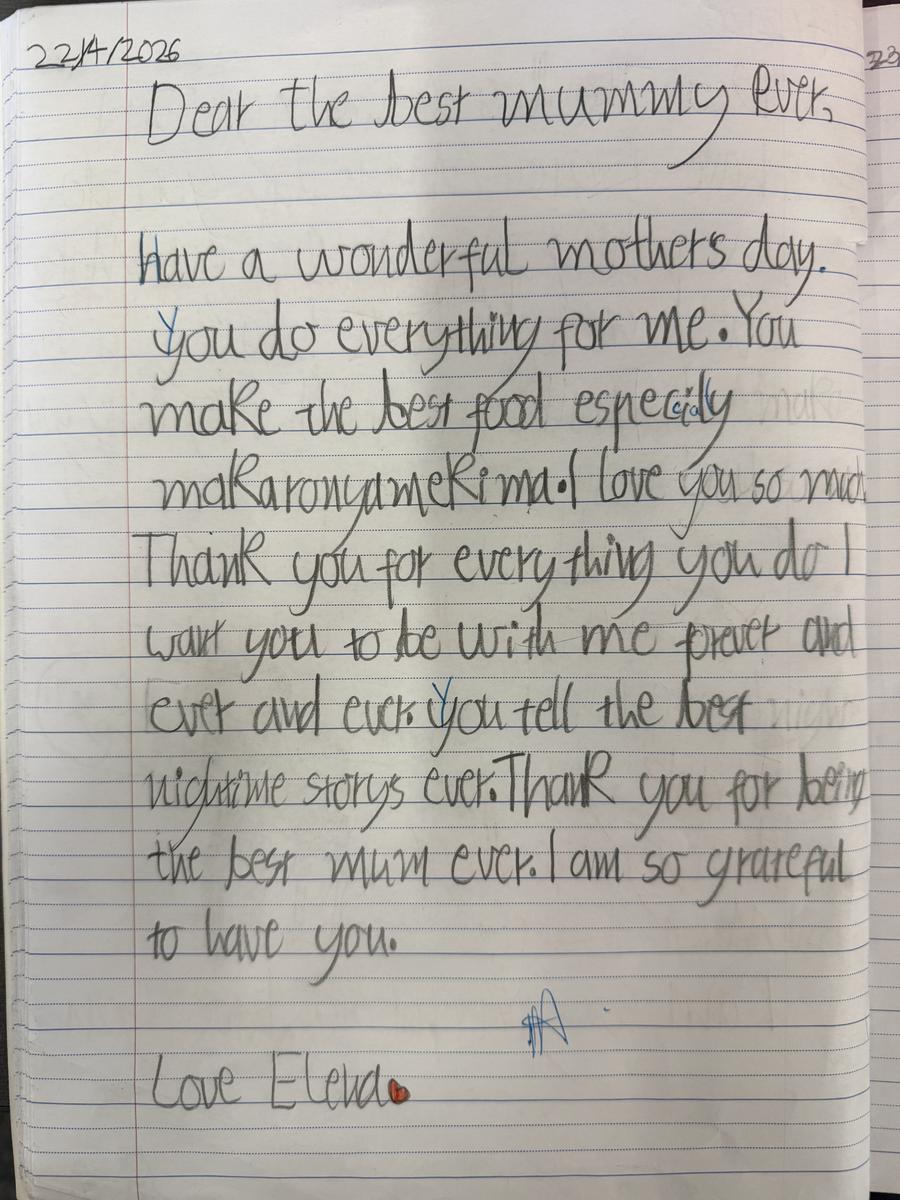 22/4/2026
Dear the best mummy ever,
Have a wonderful mothers day.
You do everything for me. You
make the best food especialy
makaronyamekima. I love you so much
Thank you for everything you do I
want you to be with me forever and
ever and ever. You tell the best
nightime storys ever. Thank you for being
the best mum ever. I am so grateful
to have you.
Love Elena